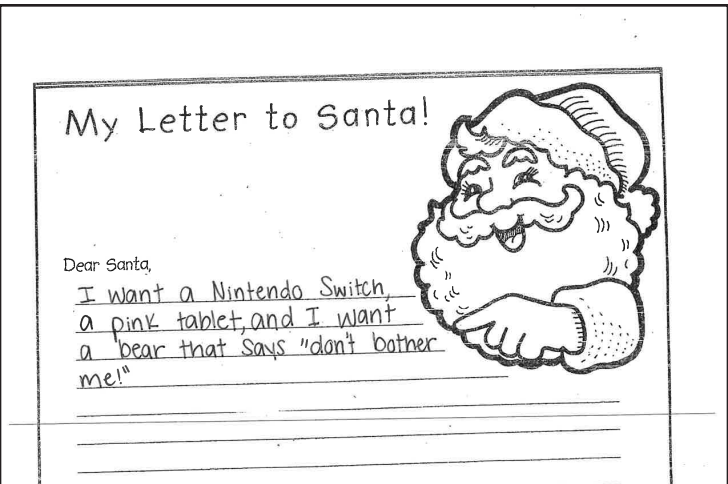 My Letter to Santa!
Dear Santa,
I want a Nintendo Switch,
a pink tablet, and I want
a bear that says "don't bother
me!"